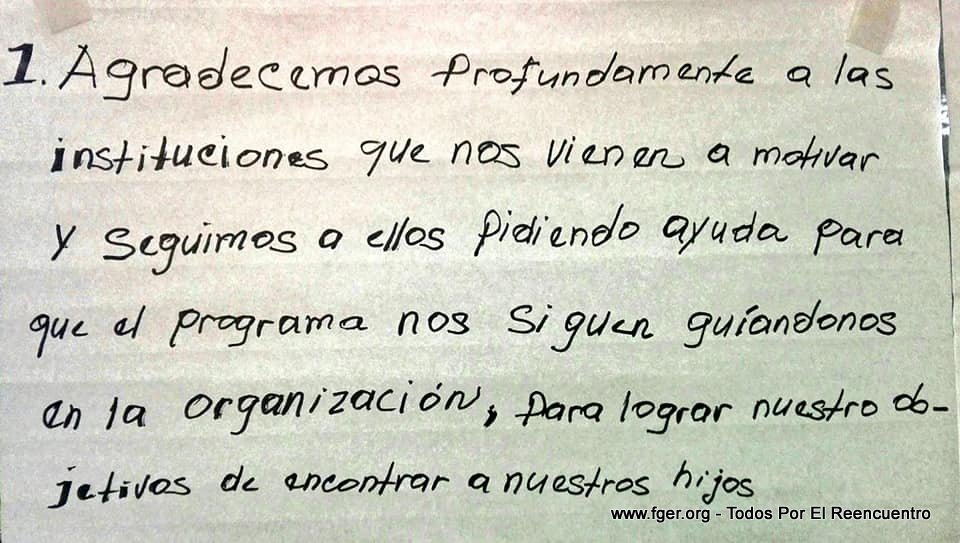 1. Agradecemos profundamente a las
instituciones que nos vienen a motivar
y seguimos a ellos pidiendo ayuda para
que el programa nos siguen guíandonos
en la organización, para lograr nuestro ob-
jetivos de encontrar a nuestros hijos
www.fger.org - Todos Por El Reencuentro